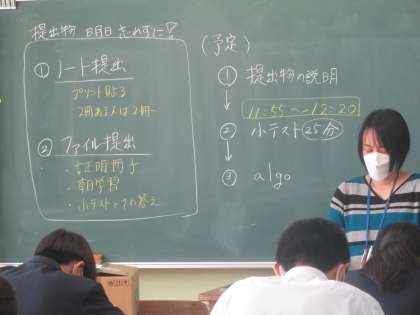 提出物 明日 忘れずに!
① ノート提出
プリントはる
2冊ある人は2冊
② ファイル提出
・証明冊子
・朝学習
・小テストとその答え
(予定)
① 提出物の説明
11:55〜12:20
② 小テスト 25分
③ algo